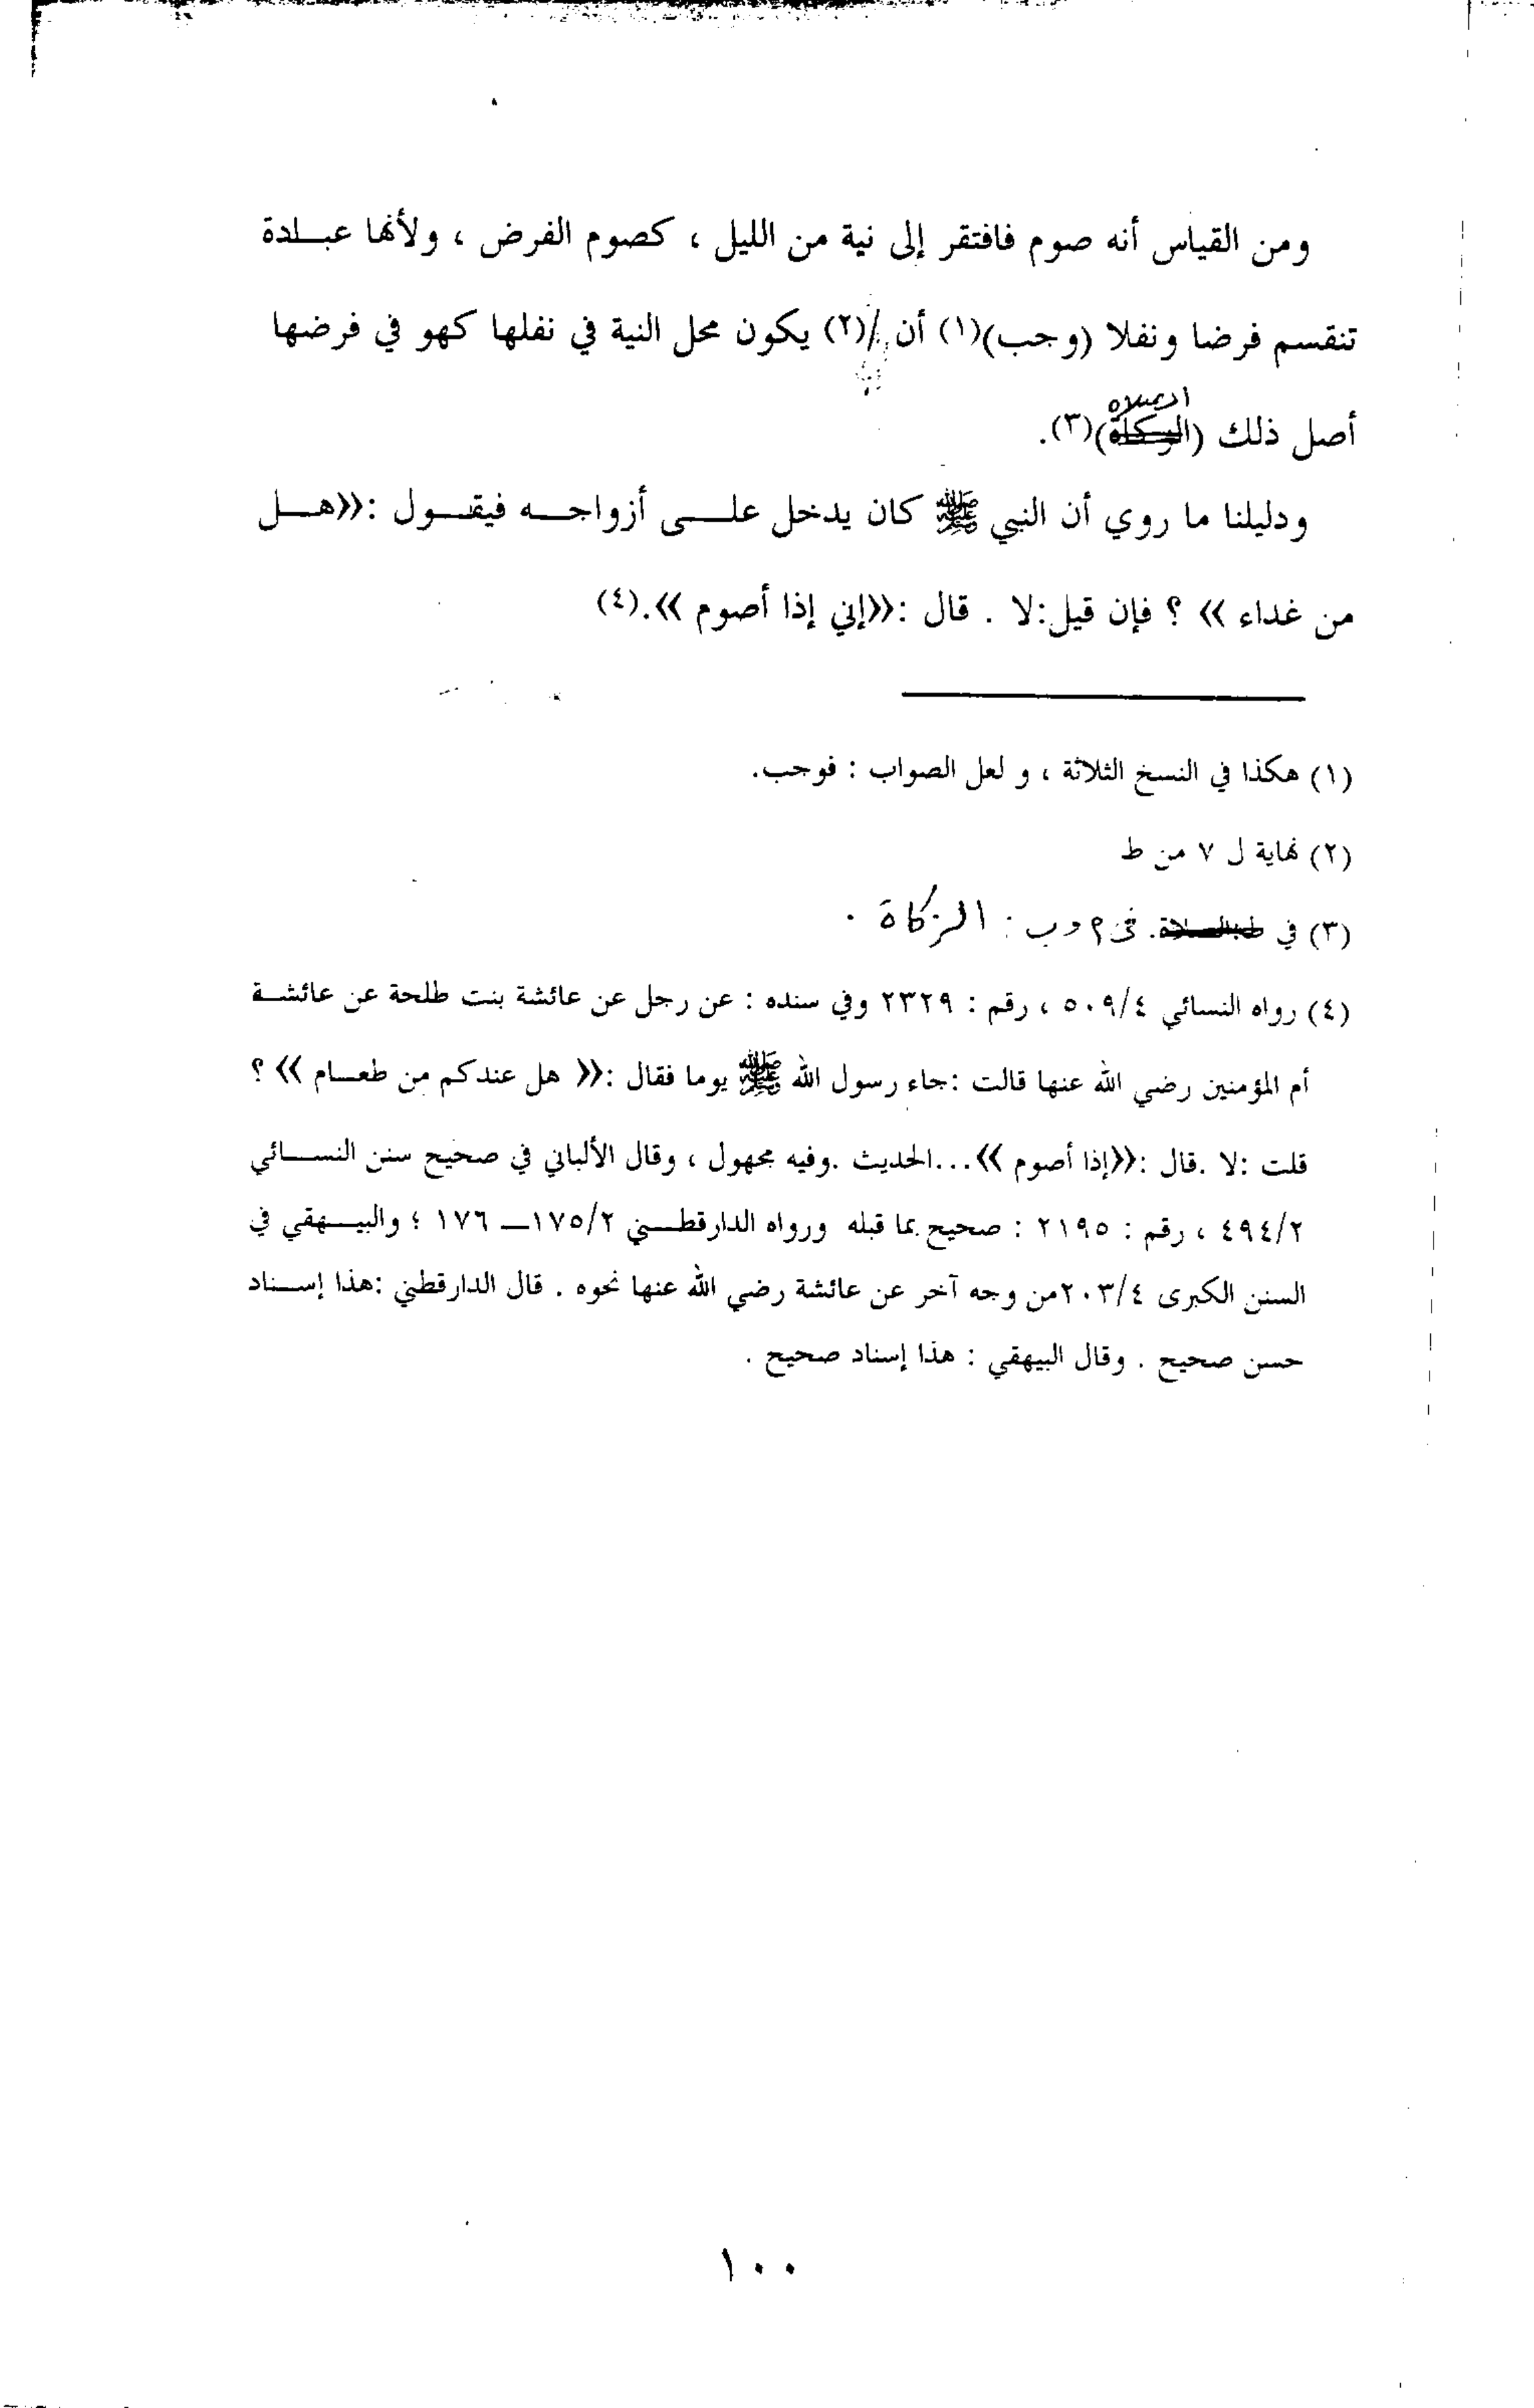 ومن القياس أنه صوم فافتقر إلى نية من الليل ، كصوم الفرض ، ولأنها عبـادة
تنقسم فرضا ونفلا (وجب)(١) أن /(٢) يكون محل النية في نفلها كهو في فرضها
أصل ذلك (الصلاة)(٣).
ودليلنا ما روي أن النبي ﷺ كان يدخل علـــى أزواجـــه فيقـــول :«هـــل
من غداء » ؟ فإن قيل:لا . قال :«إني إذا أصوم ».(٤)
(١) هكذا في النسخ الثلاثة ، و لعل الصواب : فوجب.
(٢) نهاية ل ٧ من ط
(٣) في م وب : الزكاة .
(٤) رواه النسائي ٥٠٩/٤ ، رقم : ٢٣٢٩ وفي سنده : عن رجل عن عائشة بنت طلحة عن عائشـة
أم المؤمنين رضي الله عنها قالت :جاء رسول الله ﷺ يوما فقال :« هل عندكم من طعـام » ؟
قلت :لا .قال :«إذا أصوم »...الحديث .وفيه مجهول ، وقال الألباني في صحيح سنن النسـائي
٤٩٤/٢ ، رقم : ٢١٩٥ : صحيح بما قبله ورواه الدارقطـني ١٧٥/٢ــ ١٧٦ ؛ والبيـهقي في
السنن الكبرى ٢٠٣/٤من وجه آخر عن عائشة رضي الله عنها نحوه . قال الدارقطني :هذا إسـناد
حسن صحيح . وقال البيهقي : هذا إسناد صحيح .
١٠٠